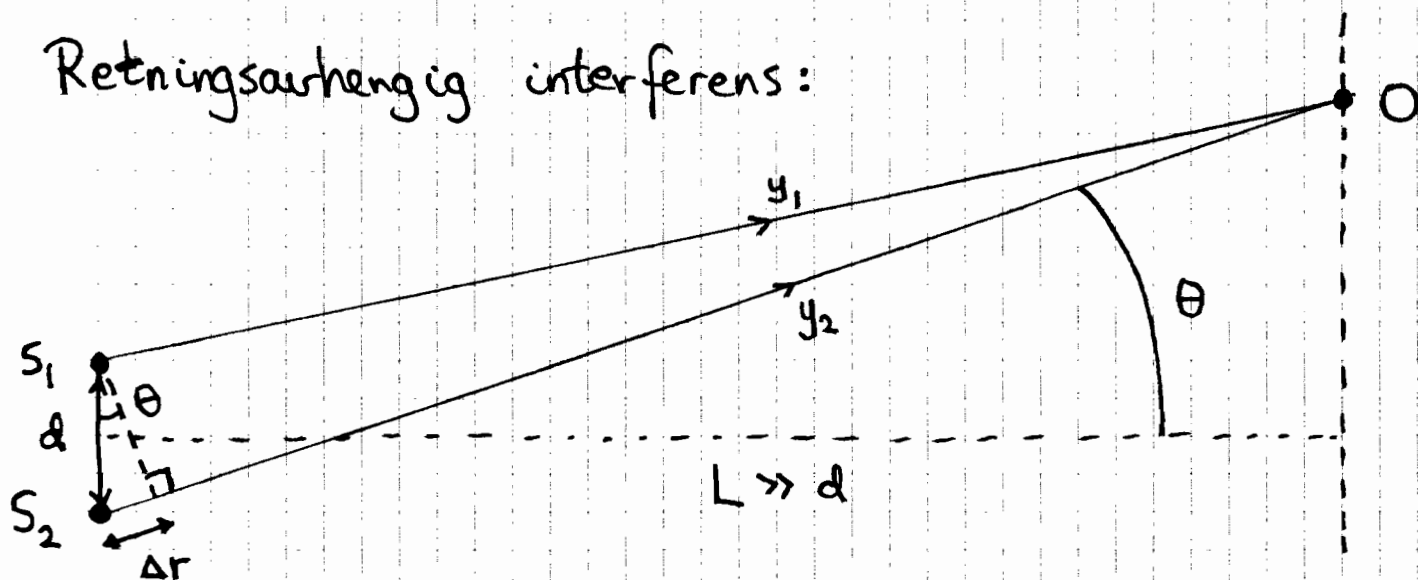 Retningsavhengig interferens:
O
y₁
θ
y₂
S₁
θ
d
L >> d
S₂
Δr